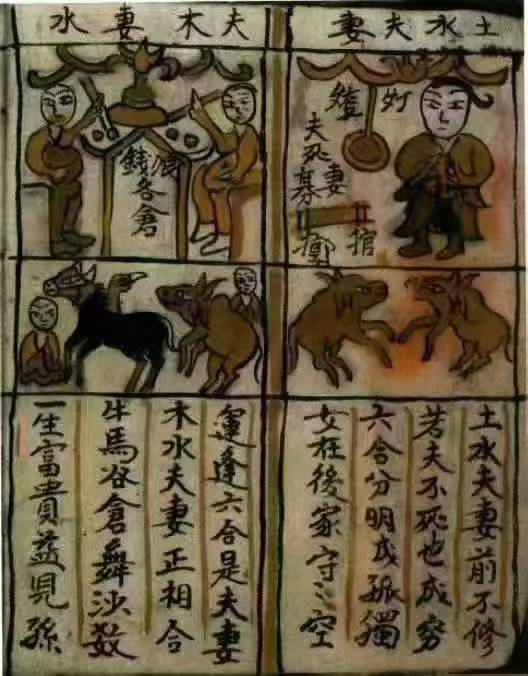 土水夫妻
灯
妻
夫死寡
棺
土水夫妻前不修
若夫不死也成穷
六合分明成孤獨
女在後家守々空
夫木妻水
錢
各倉
運逢六合是夫妻
木水夫妻正相合
牛馬谷倉舞沙数
一生富貴益見孫